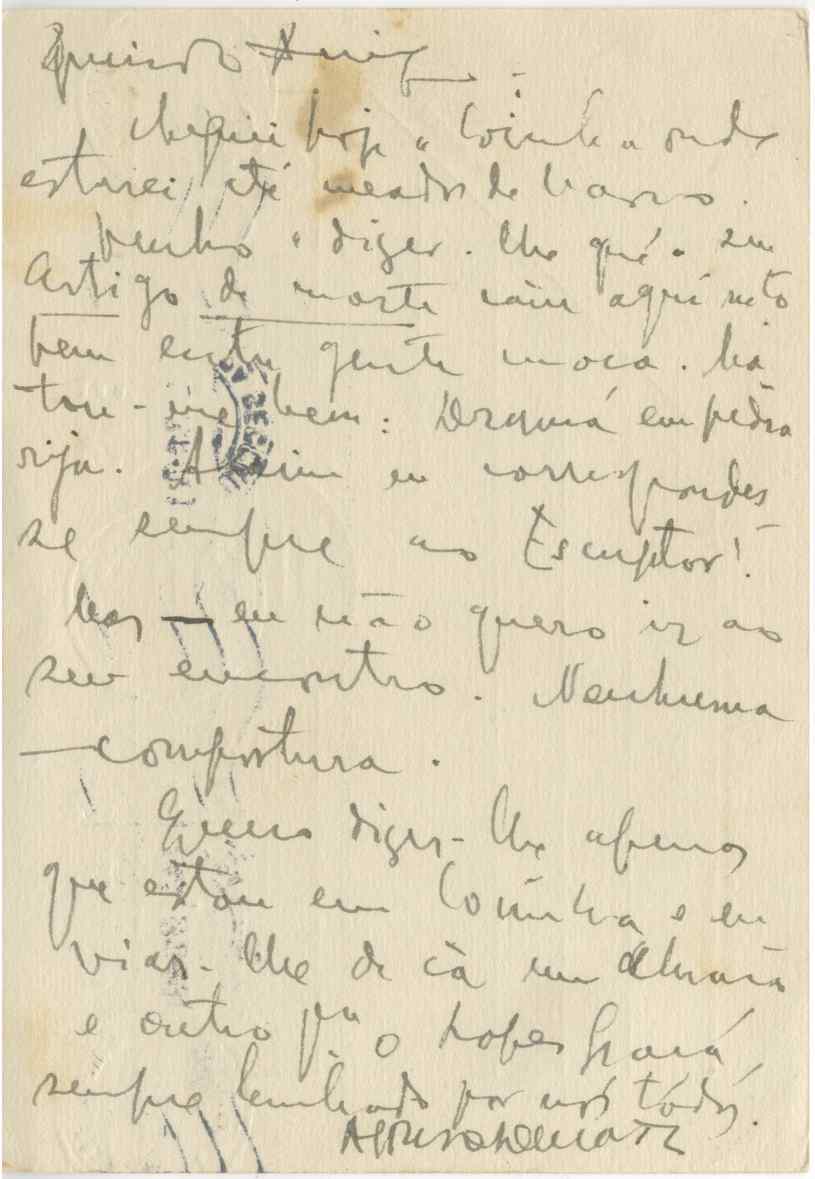 Querido Amigo:
Cheguei hoje a Coimbra onde
estarei até meados de Março.
Venho a dizer-lhe que o seu
Artigo de morte caiu aqui mto
bem entre gente moça. Ba
teu-me bem:        em pedra
rija. Assim eu correspondes
se sempre ao Escriptor!
Mas — eu não quero ir ao
seu encontro. Nenhuma
compostura.
Quero dizer-lhe apenas
que estou em Coimbra e en
viar-lhe de cá um abraço
e outro pa o Lopes Graça,
sempre lembrado por nós todos.
Afonso Duarte